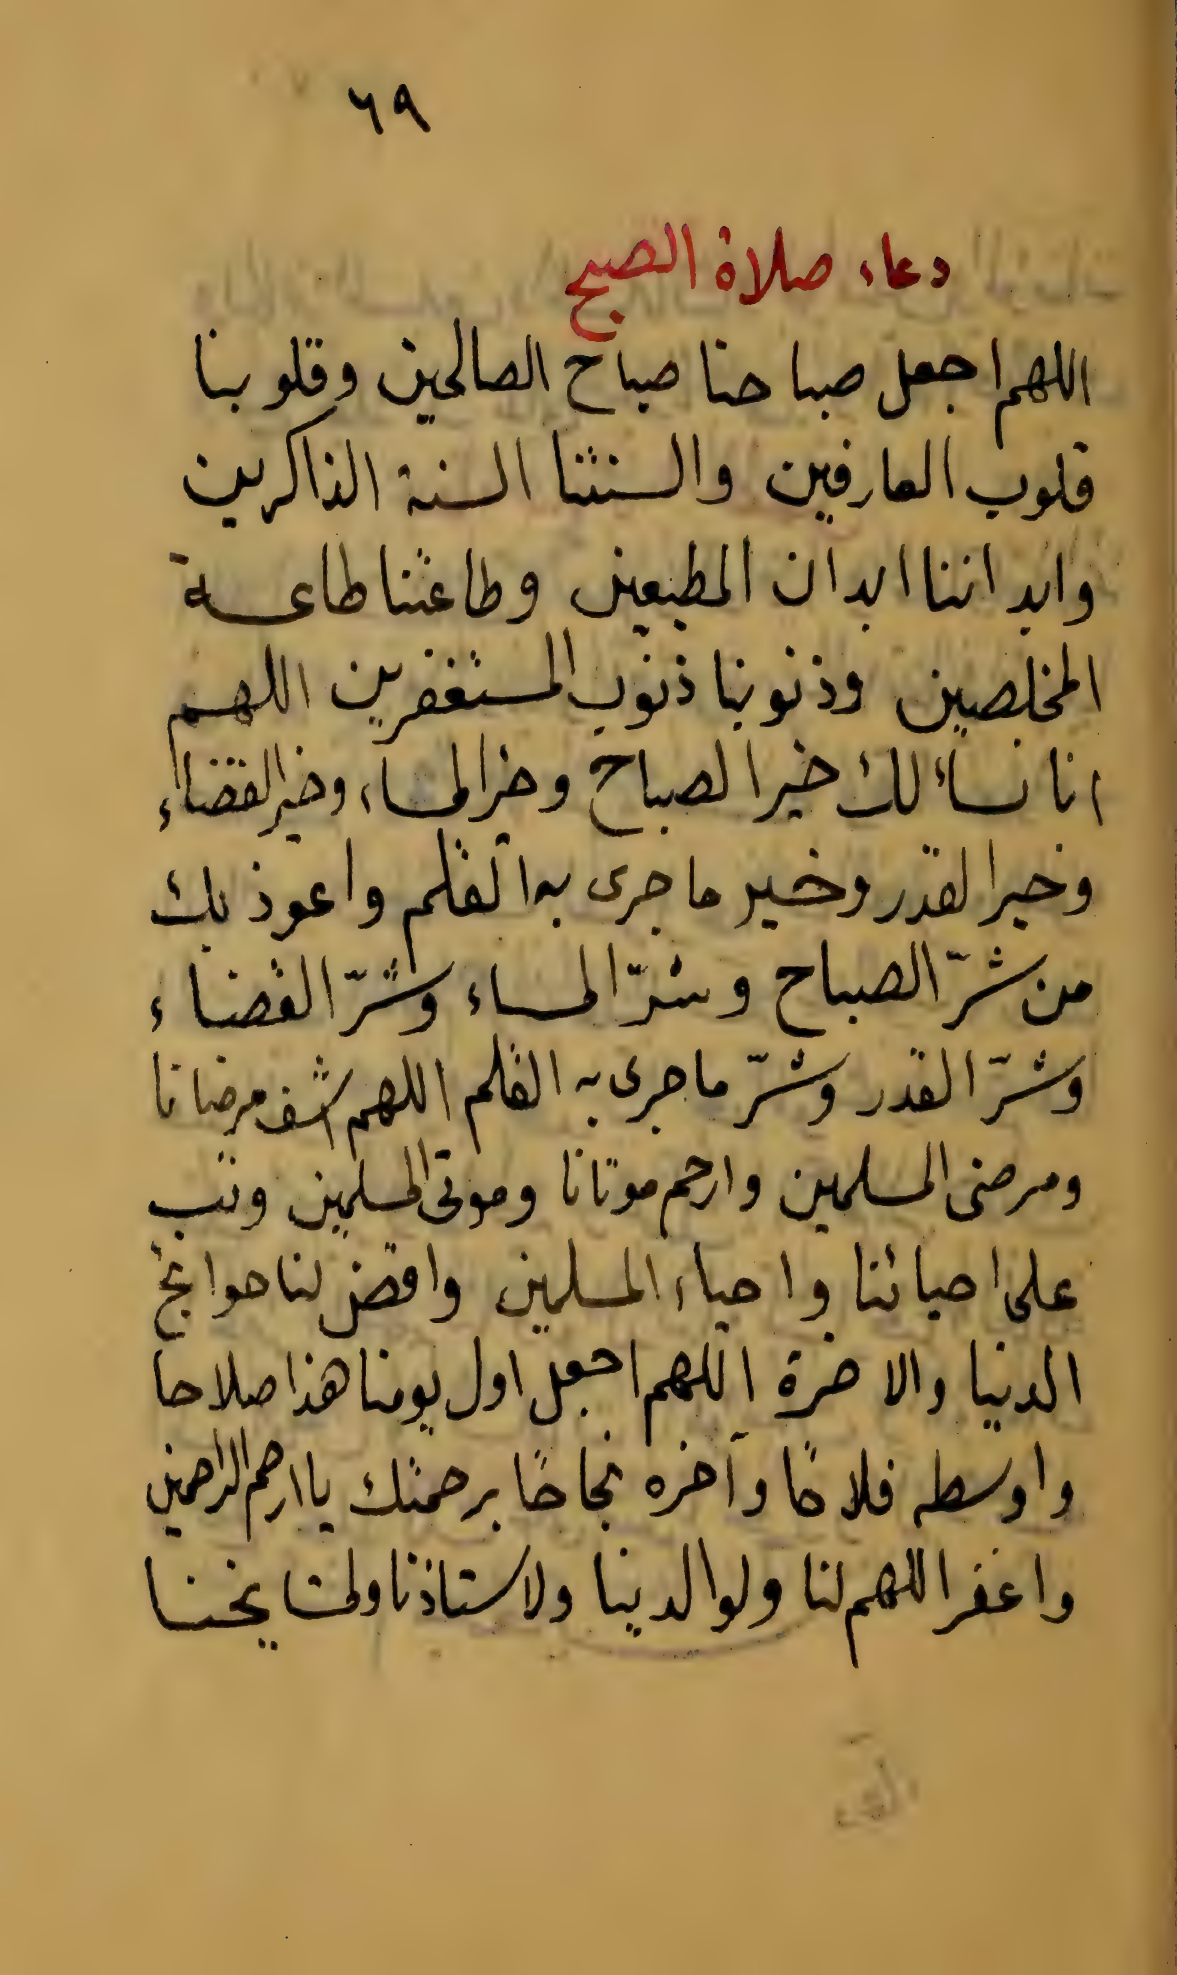 ٦٩
دعاء صلاة الصبح
اللهم اجعل صباحنا صباح الصالحين وقلوبنا
قلوب العارفين والسنتنا السنة الذاكرين
وابداننا ابدان المطيعين وطاعتنا طاعة
المخلصين وذنوبنا ذنوب المستغفرين اللهم
انا نسأ لك خير الصباح وخير المساء وخير القضاء
وخير القدر وخير ما جرى به القلم واعوذ بك
من شرّ الصباح وشرّ المساء وشرّ القضاء
وشرّ القدر وشرّ ما جرى به القلم اللهم اشف مرضانا
ومرضى المسلمين وارحم موتانا وموتى المسلمين وتب
على احيائنا واحياء المسلمين واقض لنا حوائج
الدنيا والاخرة اللهم اجعل اول يومنا هذا صلاحا
واوسطه فلاحًا وآخره نجاحًا برحمتك يا ارحم الراحمين
واغفر اللهم لنا ولوالدينا ولاستاذنا ولمشايخنا